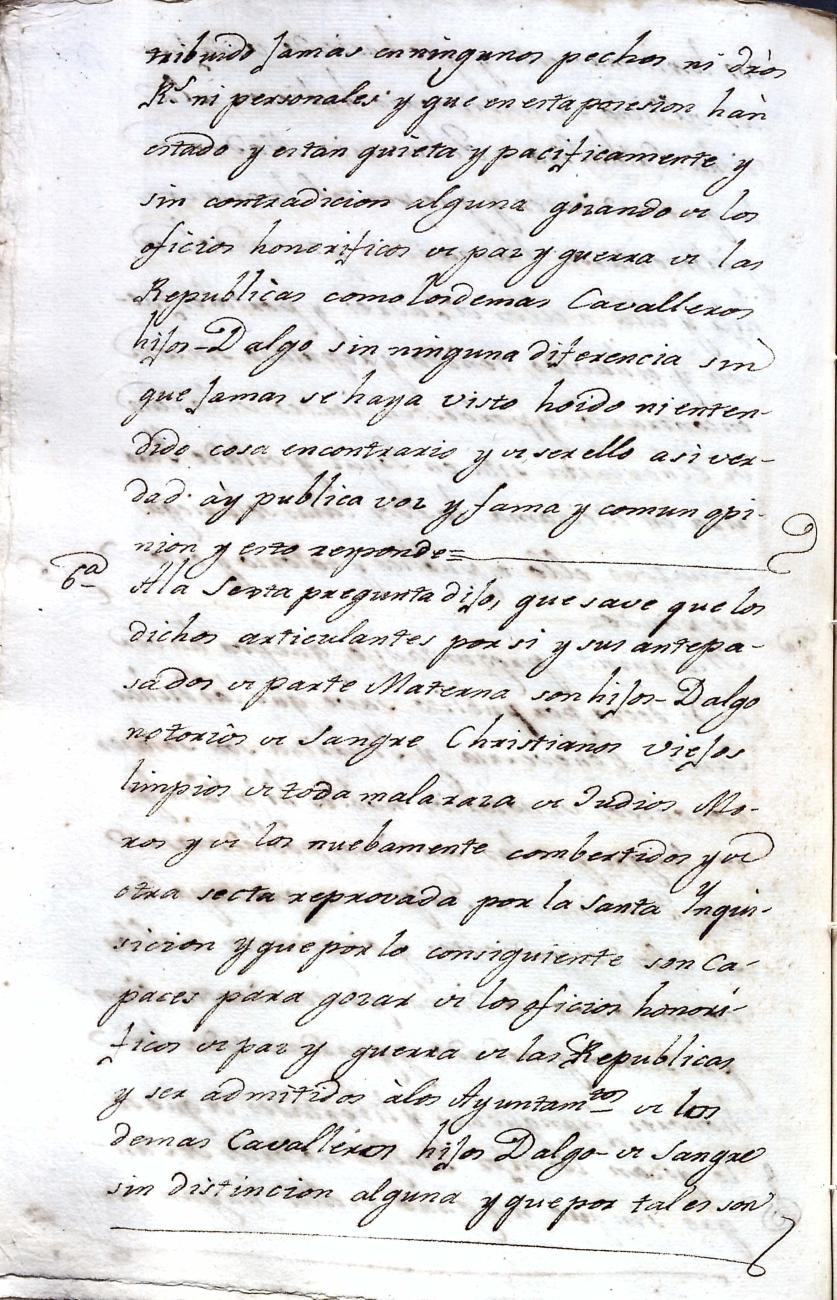 tribuido Jamas en ningunos pechos ni dròs
R.s ni personales y que en esta posesion hàn
estado y estàn quieta y pacificamente y
sin contradicion alguna gozando de los
oficios honorificos de paz y guerra de las
Republicas como los demas Cavalleros
hiJos-Dalgo sin ninguna diferencia sin
que Jamas se haya visto hoido ni enten-
dido cosa encontrario y de ser ello asi ver-
dad ày publica voz y fama y comun opi-
nion y esto responde=
6ª Ala Sexta pregunta diJo, que save que los
dichos articulantes por si y sus antepa-
sados de parte Materna son hiJos-Dalgo
notorios de Sangre Christianos vieJos
limpios de toda mala raza de Judios Mo-
ros y de los nuebamente combertidos y de
otra secta reprovada por la Santa Ynqui-
sicion y que por lo consiguiente son Ca-
paces para gozar de los oficios honori-
ficos de paz y guerra de las Republicas
y ser admitidos àlos Ayuntam.tos de los
demas Cavalleros hiJos Dalgo de Sangre
sin distincion alguna y que por tales son